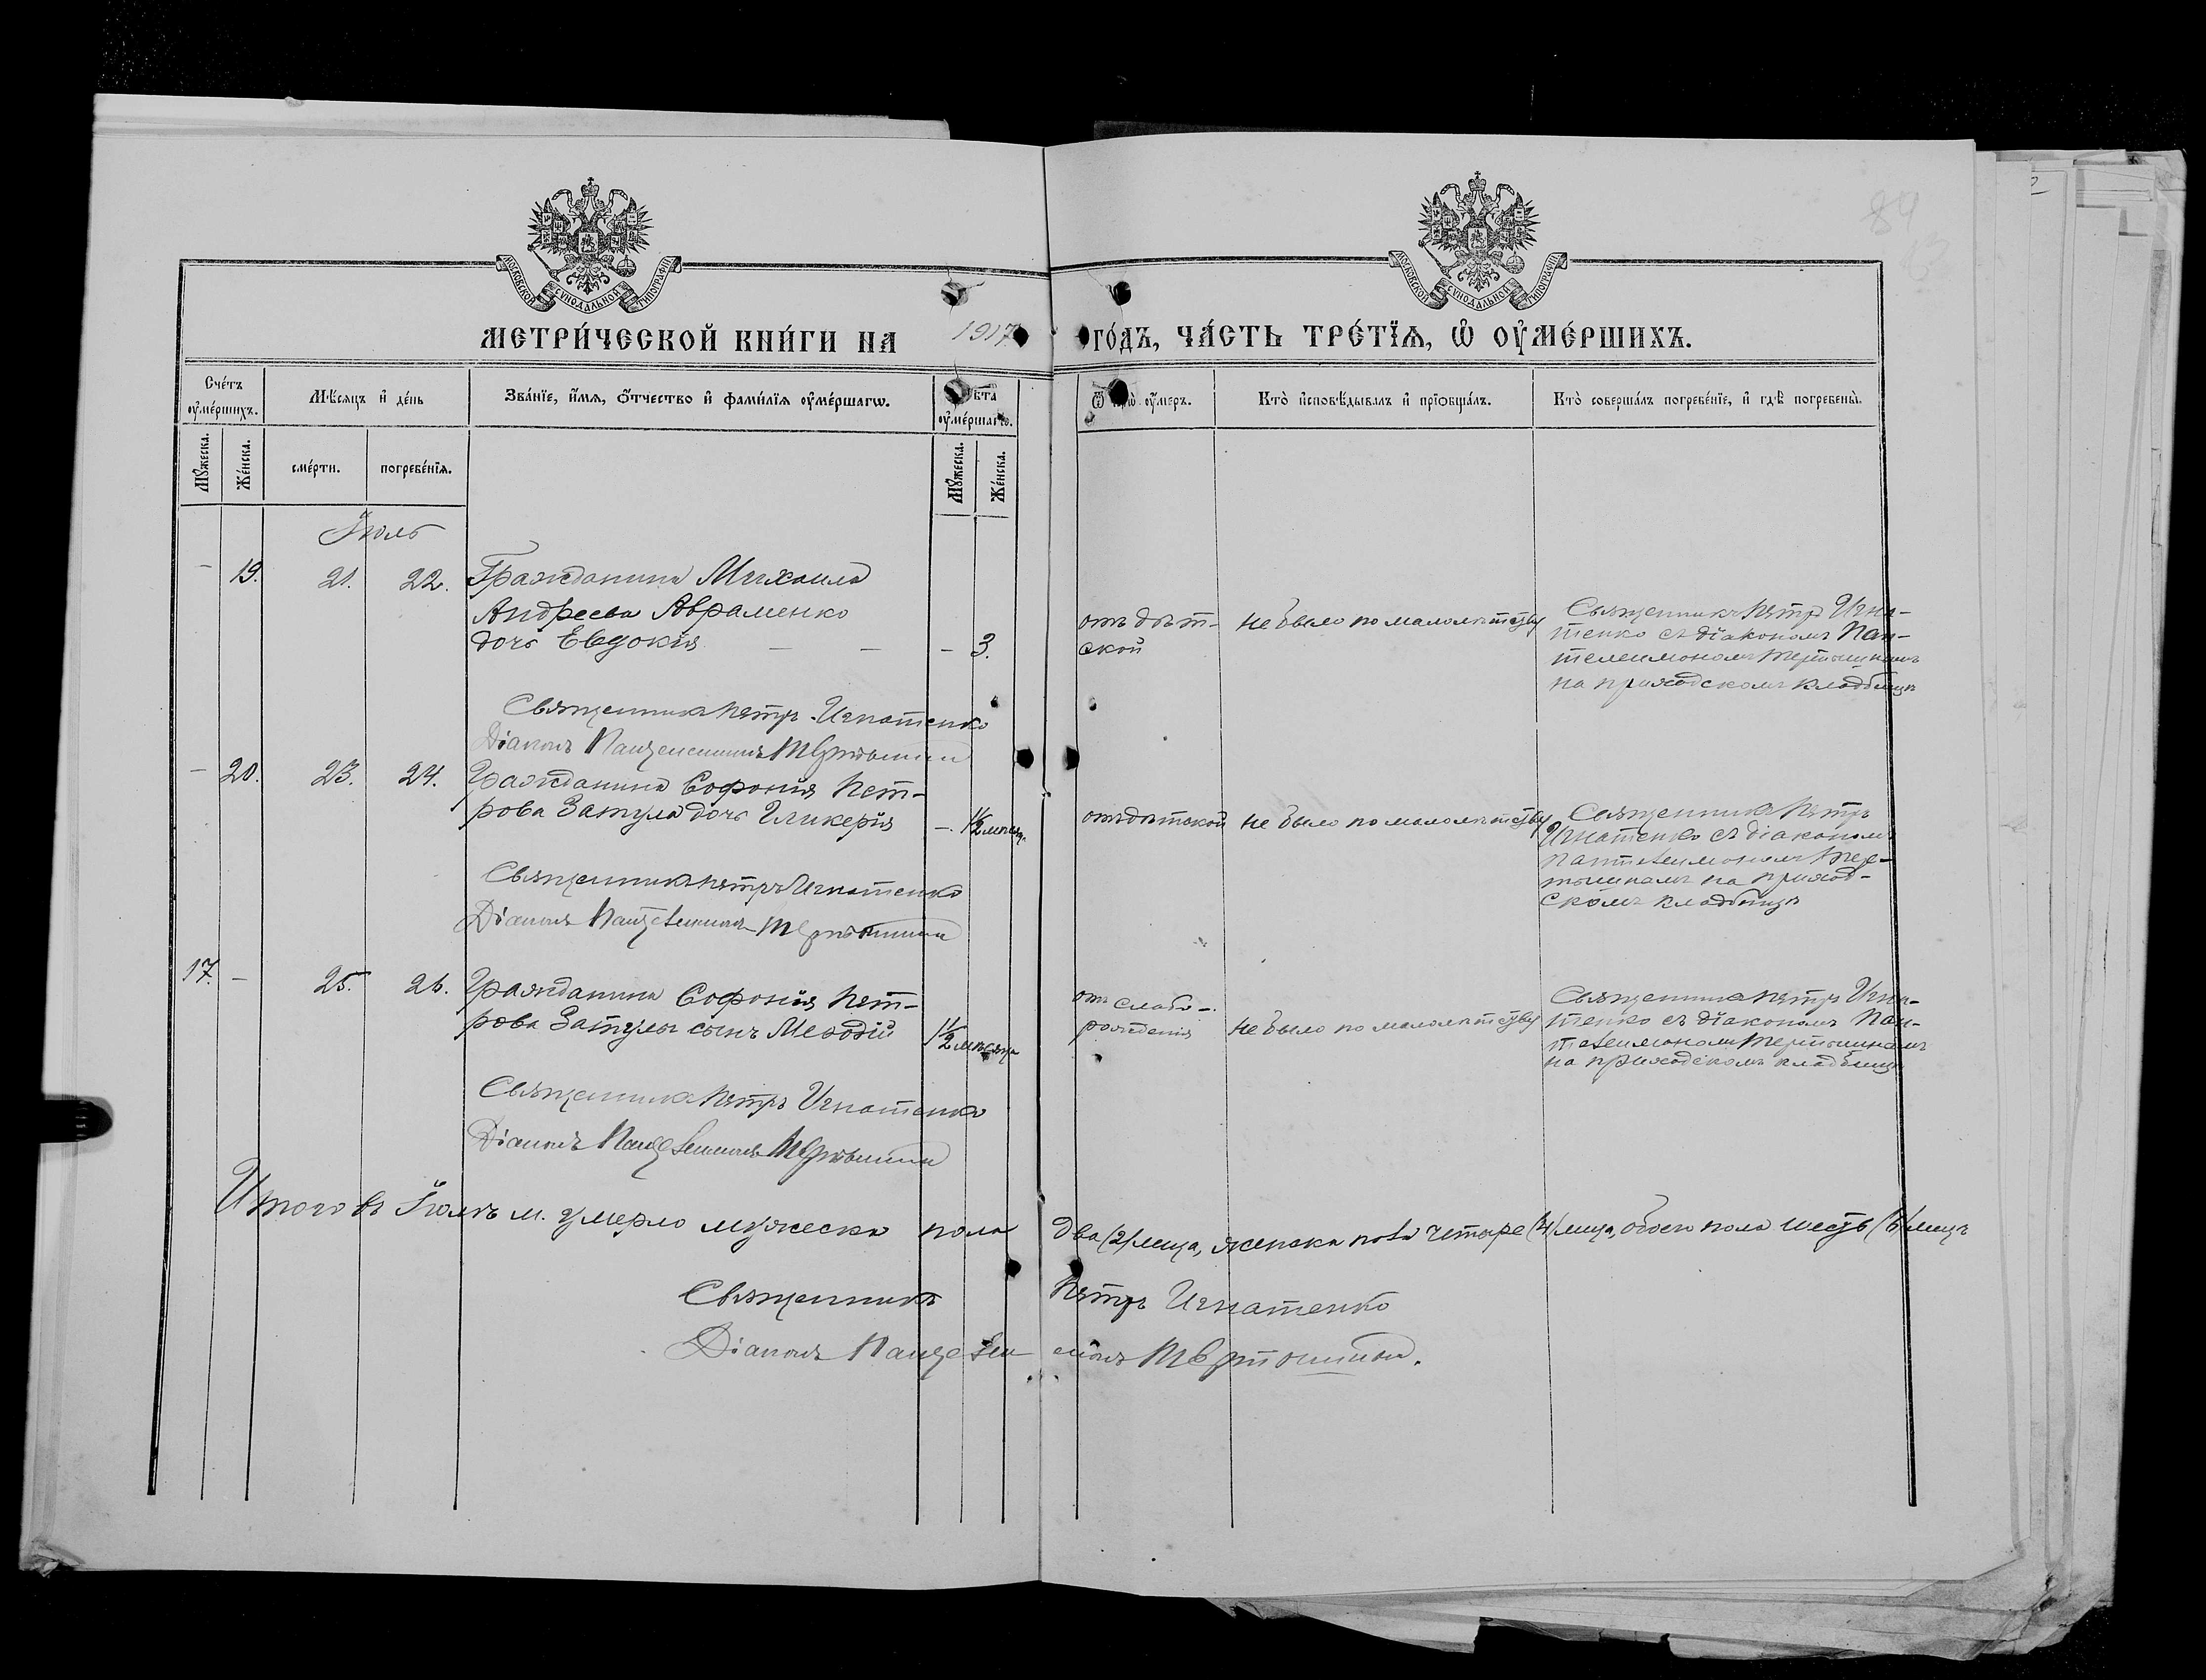 84
МОСКОВСКОЙ СѴНОДАЛЬНОЙ ТИПОГРАФІИ
МОСКОВСКОЙ СѴНОДАЛЬНОЙ ТИПОГРАФІИ
МЕТРИ́ЧЕСКОЙ КНИ́ГИ НА 1917 ГО́ДЪ, ЧА́СТЬ ТРЕ́ТЇѦ, Ѡ҆ ОУ҆МЕ́РШИХЪ.
Сче́тъ оу҆ме́ршихъ.
Мѣ́сяцъ и҆ де́нь
Зва́нїе, и҆́мѧ, ѻ҆́тчество и҆ фами́лїѧ оу҆ме́ршагѡ.
Лѣ́та оу҆ме́ршагѡ.
оу҆́меръ.
Кто̀ и҆сповѣ́дывалъ и҆ прїѡбща́лъ.
Кто̀ соверша́лъ погребе́нїе, и҆ гдѣ̀ погребены̀.
Мꙋ́жеска.
Же́нска.
сме́рти.
погребе́нїѧ.
Мꙋ́жеска.
Же́нска.
Іюль
– 19. 21. 22. Гражданина Михаила
Андреева Авраменко
дочь Евдокія – – – 3.
отъ дѣт-
ской
не было по малолѣтству
Священникъ Петръ Игна-
тенко съ діакономъ Пан-
телеимономъ Тертышникомъ
на приходскомъ кладбищѣ
Священникъ Петръ Игнатенко
Діаконъ Пантелеимонъ Тертышник
– 20. 23. 24. Гражданина Софонія Пет-
рова Затула дочь Гликерія –. 1½ мѣсяц.
отъ дѣтской
не было по малолѣтству
Священникъ Петръ
Игнатенко съ діакономъ
Пантелеимономъ Тер-
тышникомъ на приход-
скомъ кладбищѣ
Священникъ Петръ Игнатенко
Діаконъ Пантелеимонъ Тертышник
17. – 25. 26. Гражданина Софонія Пет-
рова Затулы сынъ Меѳодій 1½ мѣсяца
отъ слабо-
рожденія
не было по малолѣтству
Священникъ Петръ Игна-
тенко съ діакономъ Пан-
телеимономъ Тертышникомъ
на приходскомъ кладбищѣ
Священникъ Петръ Игнатенко
Діаконъ Пантелеимонъ Тертышник
Итого въ Іюлѣ м. умерло мужеска пола два (2) лица, женска пола четыре (4) лица, обоего пола шесть (6) лицъ
Священникъ Петръ Игнатенко
Діаконъ Пантелеимонъ Тертышник.